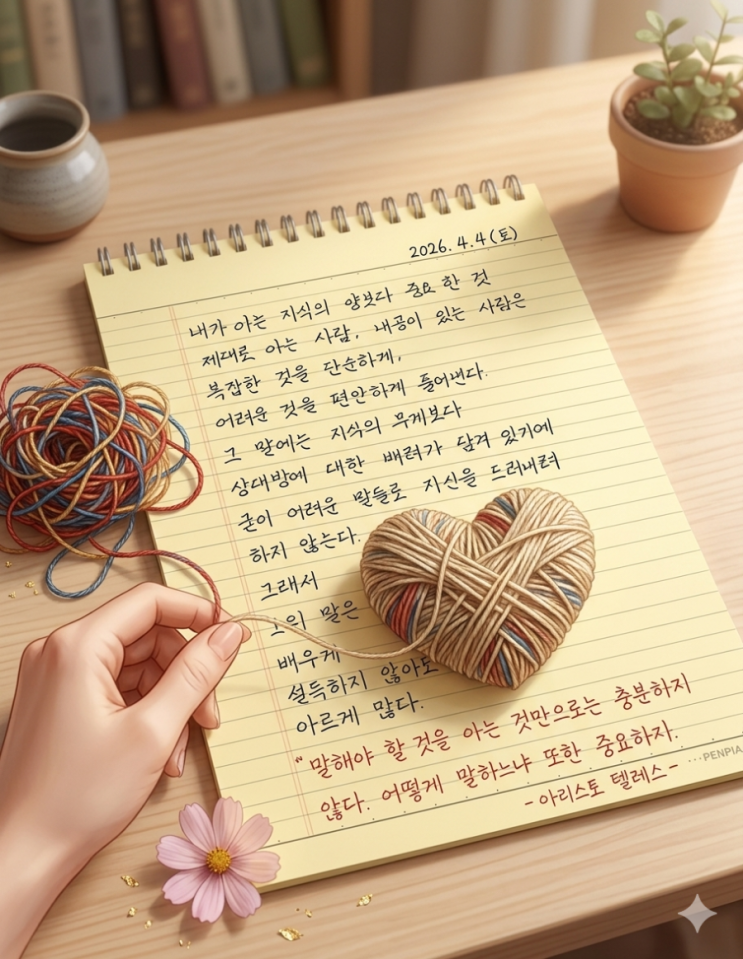 2026. 4. 4 (토)
내가 아는 지식의 양보다 중요 한 것
제대로 아는 사람, 내공이 있는 사람은
복잡한 것을 단순하게,
어려운 것을 편안하게 풀어낸다.
그 말에는 지식의 무게보다
상대방에 대한 배려가 담겨 있기에
굳이 어려운 말들로 자신을 드러내려
하지 않는다.
그래서
그의 말은
배우게
설득하지 않아도
아르게 많다.
"말해야 할 것을 아는 것만으로는 충분하지
않다. 어떻게 말하느냐 또한 중요하지.
- 아리스토 텔레스 -
...PENPIA